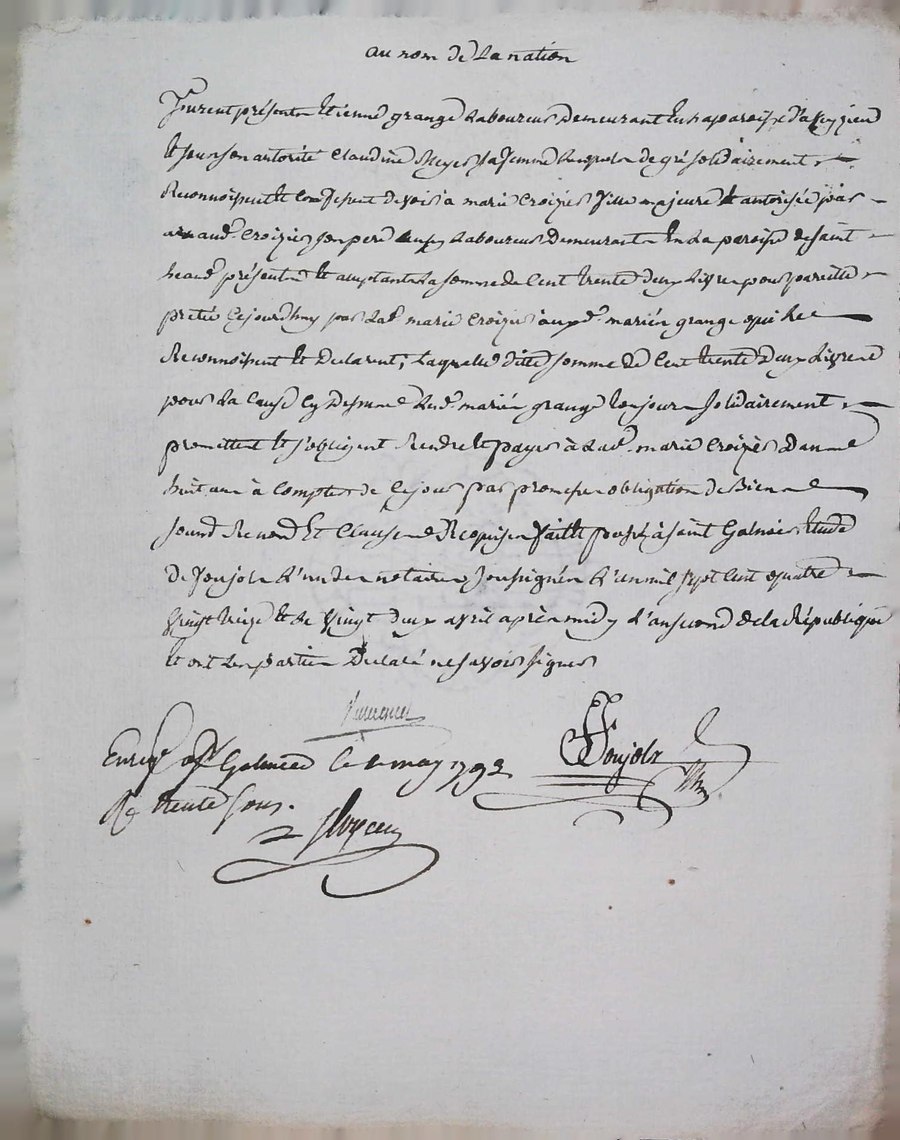 au nom de La nation
furent présents Etienne grange Laboureur Demeurant En La paroisse d'aveyzieu
Et sous son autorité Claudine Meyer sa femme Lesquels de gré solidairement
Reconnoissent Et Confessent devoir a marie Croizier fille majeure Et autorisée par
Croizier son pere aussy Laboureur Demeurant En La paroisse de saint
heand présente Et acceptante La somme de Cent trente deux Livres pour pareille
pretée Cejourdhuy par Lad. marie Croizier auxd. mariés grange qui Le
Reconnoissent Et Declarent, Laquelle ditte somme de Cent trente deux Livres
pour La Cause Cy Dessus Lesd. mariés grange toujours solidairement
promettent Et s'obligent Rendre Et payer à Lad. marie Croizier Dans
huit ans à Compter de Cejour par promesse obligation de Biens
soumd Renond Et Clauses Requises fait Et passé à saint Galmier Etude
De foujols L'un des notaires soussignés L'an mil sept Cent quatre
vingt treize Et Le vingt deux avril après midy L'an second de La République
Et ont Les parties Declaré ne savoir signer
foujols
Enreg. a St Galmier Le may 1793
R trente sous.